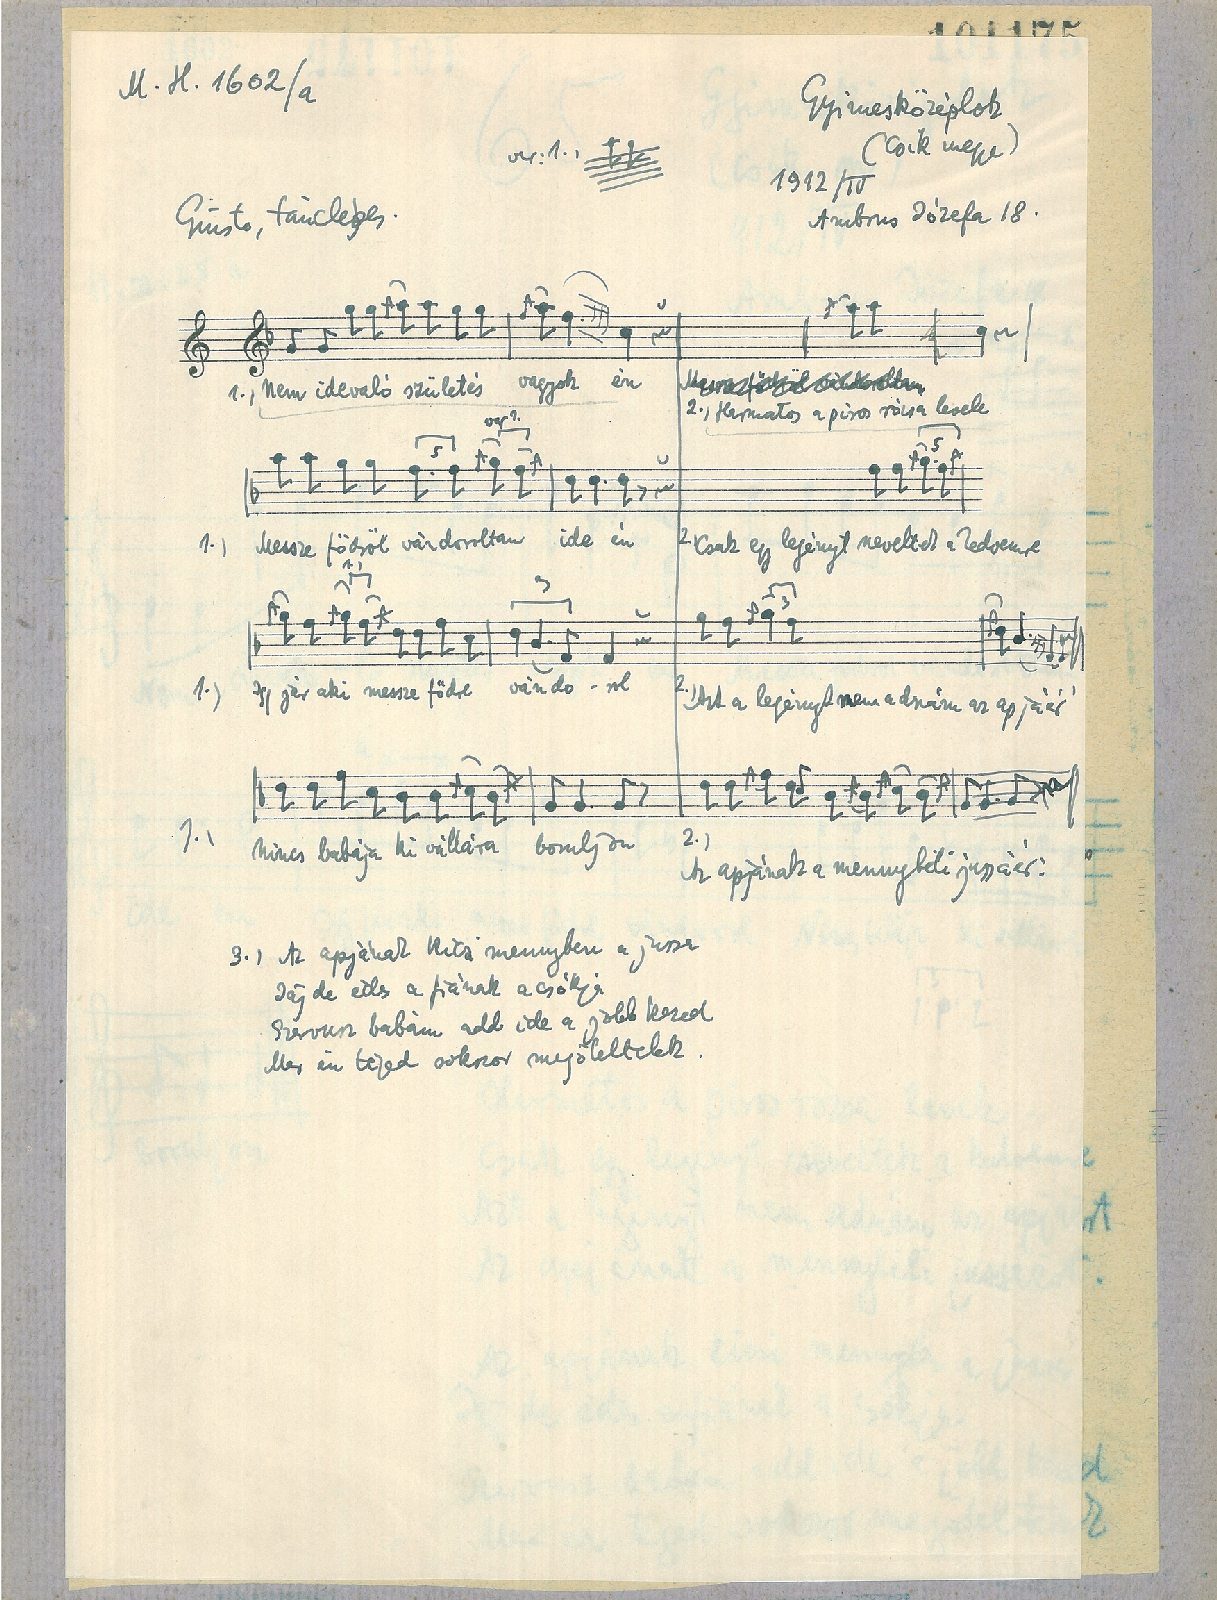 101175
M. H. 1602/a
Gyimesközéplok
(Csík megye)
var: 1.,
1912/IV
Ambrus Józefa 18.
Giusto, tánclépés.
1., Nem idevaló születés vagyok én
Messze födről vándoroltam
2., Harmatos a piros rózsa levele
var?
5
5
1.) Messze födről vándoroltam ide én
2. Csak egy legényt neveltek a kedvemre
3
3
1.) Így jár aki messze födre vándo-rol
2.) Azt a legényt nem adnám az apjáér
1.) Nincs babája ki vállára boruljon
2.)
Az apjának a mennybéli jussáér.
3.) Az apjának kicsi mennyben a jussa
Jáj de édes a fiának a csókja
Szervusz babám add ide a jobb kezed
Mer én téged sokszor megöleltelek.